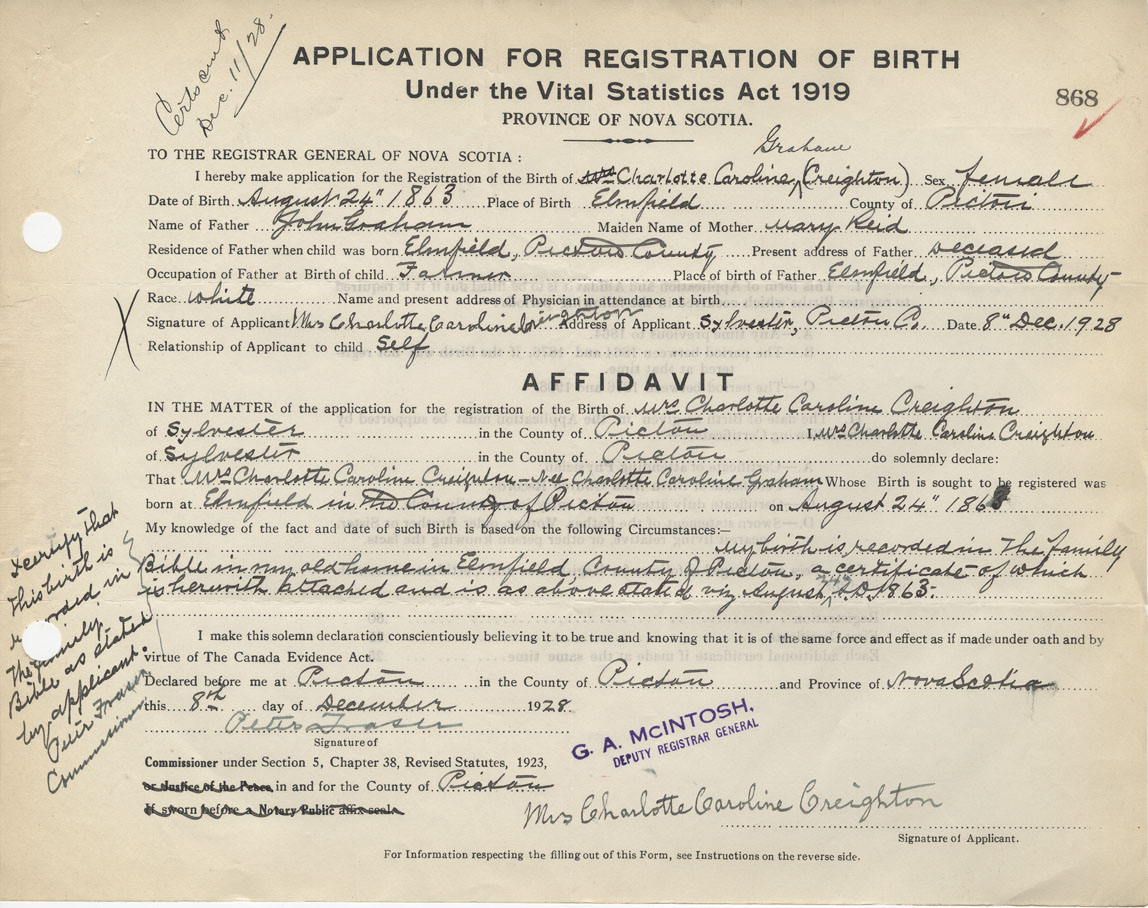 Cert sent
Dec. 11/28.
APPLICATION FOR REGISTRATION OF BIRTH
Under the Vital Statistics Act 1919
PROVINCE OF NOVA SCOTIA.
868
TO THE REGISTRAR GENERAL OF NOVA SCOTIA :
Graham
I hereby make application for the Registration of the Birth of Mrs Charlotte Caroline (Creighton) Sex female
Date of Birth August 24" 1863 Place of Birth Elmfield County of Pictou
Name of Father John Graham Maiden Name of Mother Mary Reid
Residence of Father when child was born Elmfield, Pictou County Present address of Father Deceased
Occupation of Father at Birth of child Farmer Place of birth of Father Elmfield, Pictou County
Race white Name and present address of Physician in attendance at birth
Signature of Applicant Mrs Charlotte Caroline Creighton Address of Applicant Sylvester, Pictou Co. Date 8" Dec. 1928
Relationship of Applicant to child Self
AFFIDAVIT
IN THE MATTER of the application for the registration of the Birth of Mrs Charlotte Caroline Creighton
of Sylvester in the County of Pictou I, Mrs Charlotte Caroline Creighton
of Sylvester in the County of Pictou do solemnly declare:
That Mrs Charlotte Caroline Creighton - Nee Charlotte Caroline Graham Whose Birth is sought to be registered was
born at Elmfield in the County of Pictou on August 24" 1863
My knowledge of the fact and date of such Birth is based on the following Circumstances:—
my birth is recorded in the family
Bible in my old home in Elmfield, County of Pictou, a certificate of which
is herwith attached and is as above stated viz August 24th A.D. 1863.
I certify that
this birth is
recorded in
the family
Bible as stated
by applicant.
Peter Fraser
Commissioner
I make this solemn declaration conscientiously believing it to be true and knowing that it is of the same force and effect as if made under oath and by
virtue of The Canada Evidence Act.
Declared before me at Pictou in the County of Pictou and Province of Nova Scotia
this 8th day of December 1928
Peter Fraser
Signature of
G. A. McINTOSH,
DEPUTY REGISTRAR GENERAL
Commissioner under Section 5, Chapter 38, Revised Statutes, 1923,
or Justice of the Peace in and for the County of Pictou
If sworn before a Notary Public affix seal.
Mrs Charlotte Caroline Creighton
Signature of Applicant.
For Information respecting the filling out of this Form, see Instructions on the reverse side.